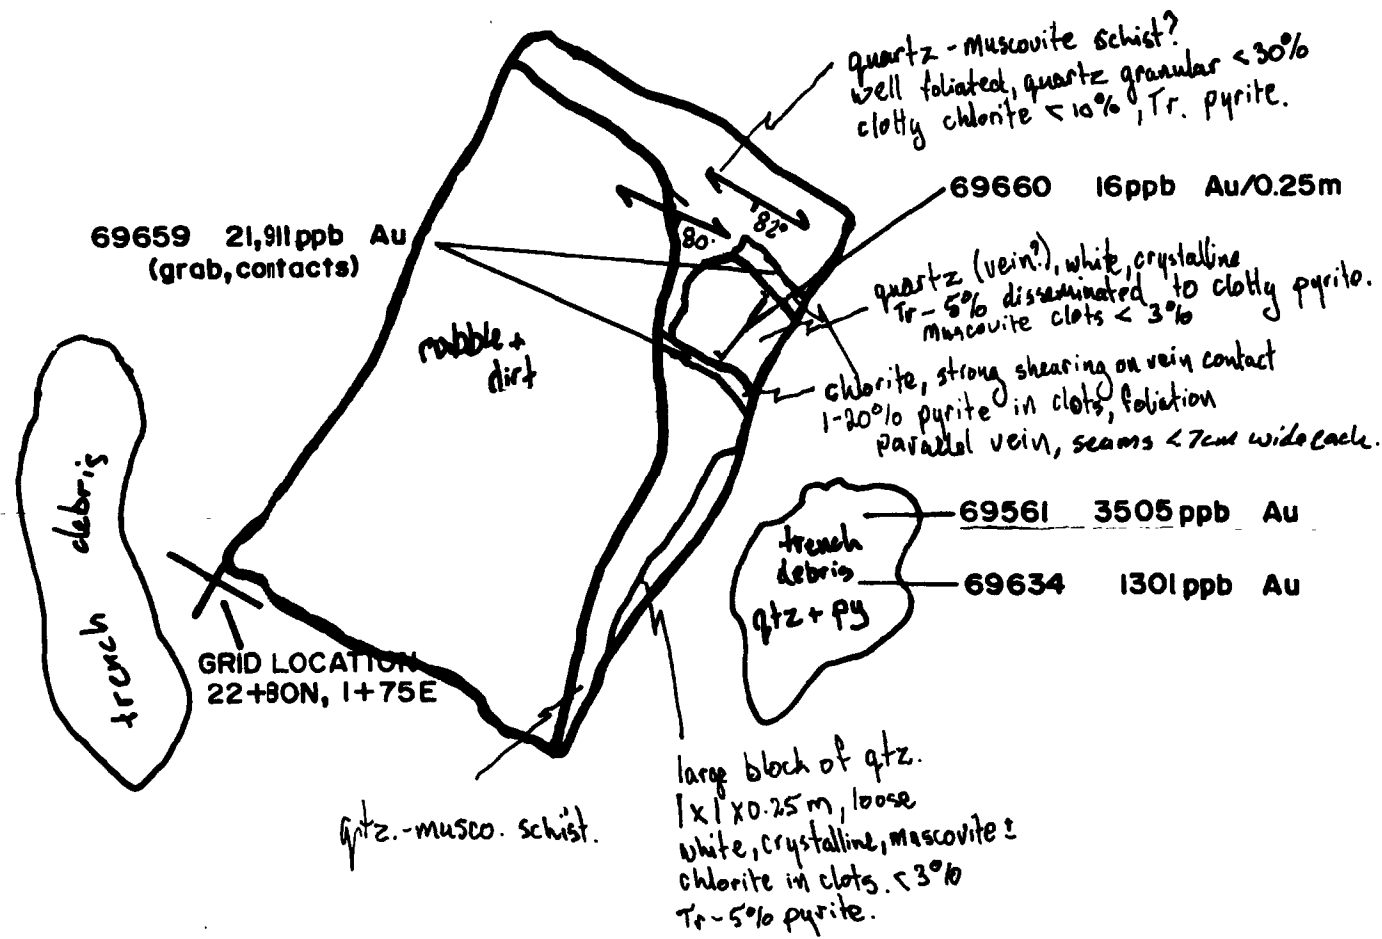 quartz-muscovite schist?
well foliated, quartz granular <30%
clotty chlorite <10%, Tr. pyrite.
69660 16ppb Au/0.25m
69659 21,911ppb Au
(grab, contacts)
80°
82°
quartz (vein?), white, crystalline
Tr-5% disseminated to clotty pyrite.
muscovite clots < 3%
rubble +
dirt
chlorite, strong shearing on vein contact
1-20% pyrite in clots, foliation
parallel vein, seams <7cm wide each.
trench debris
69561 3505ppb Au
trench
debris
qtz + py
69634 1301ppb Au
GRID LOCATION
22+80N, 1+75E
qtz.-musco. schist.
large block of qtz.
1x1x0.25m, loose
white, crystalline, muscovite ±
chlorite in clots. <3%
Tr-5% pyrite.